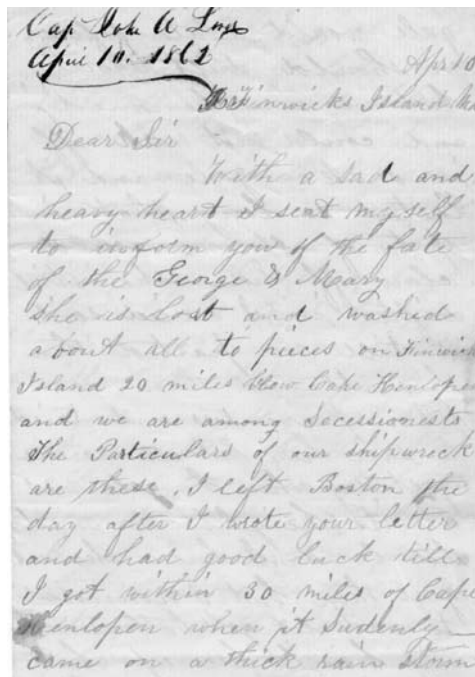 Cap John A
April 10. 1862
Apr 10
Finwicks Island
Dear Sir
With a sad and
heavy heart I seat myself
to inform you of the fate
of the George & Mary
she is lost and washed
about all to pieces on Finwick
Island 20 miles blow Cake Henlope
and we are among Secessionests
The Particulars of our shipwreck
are these. I left Boston the
day after I wrote your letter
and had good luck till
I got within 30 miles of Cape
Henlopen when it Suddenly
came on a thick rain storm